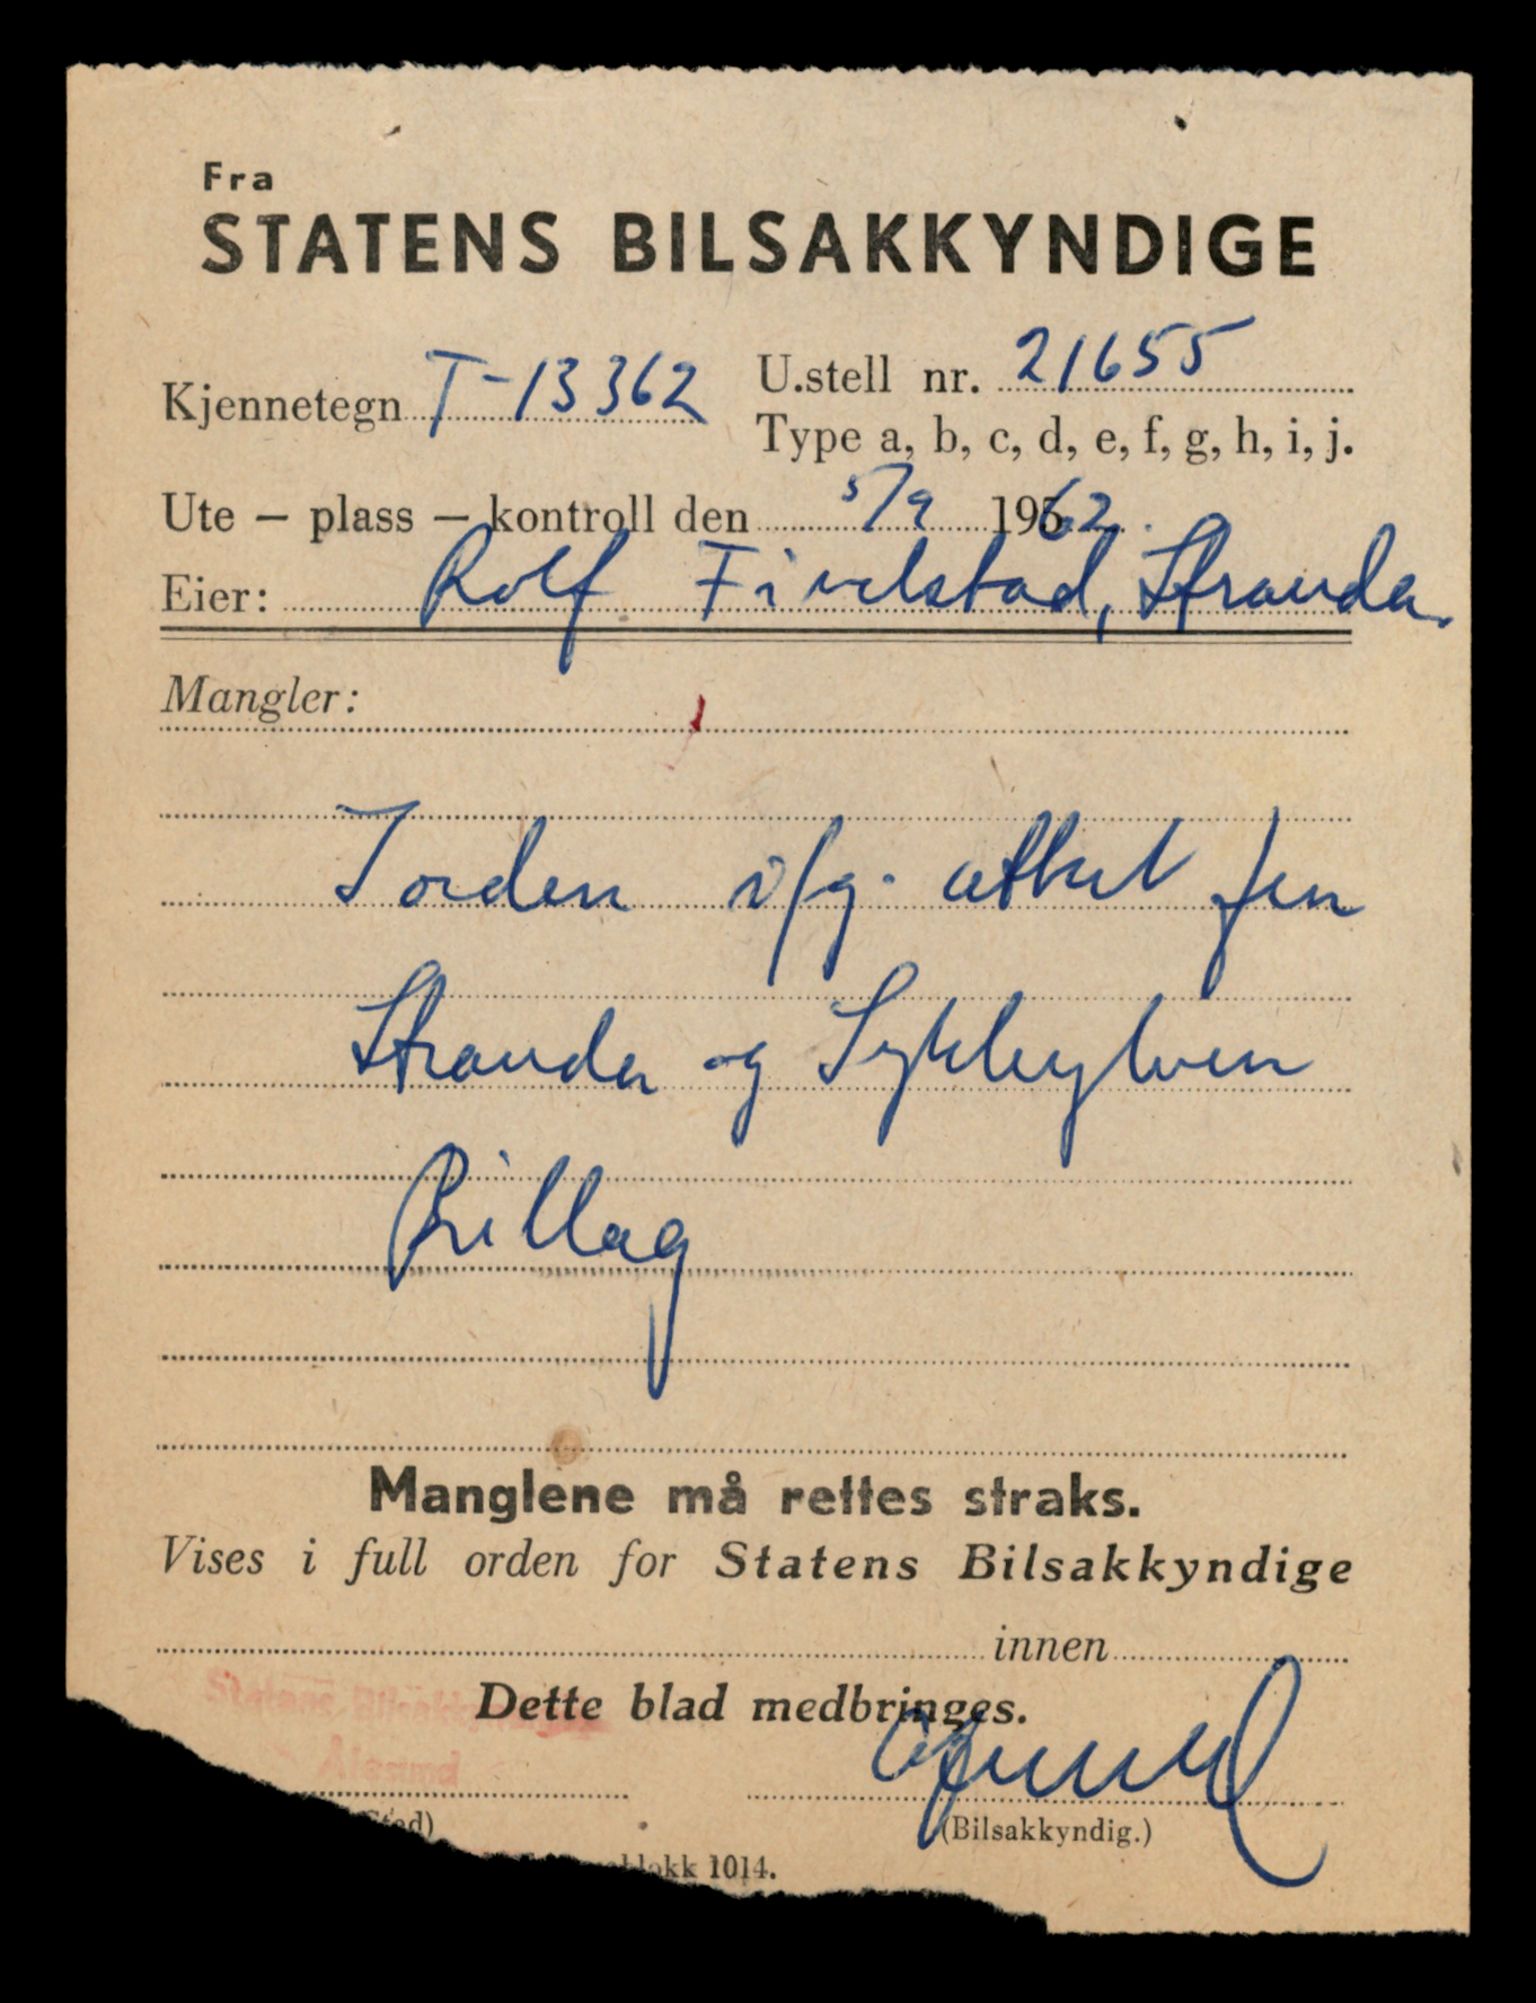 Fra
STATENS BILSAKKYNDIGE
Kjennetegn T-13362 U.stell nr. 21655
Type a, b, c, d, e, f, g, h, i, j.
Ute – plass – kontroll den 5/9 1962.
Eier: Rolf Fivelstad, Stranda.
Mangler:
I orden
Stranda og Sykkylven
Billag
Manglene må rettes straks.
Vises i full orden for Statens Bilsakkyndige
innen
Dette blad medbringes.
Statens Bilsakkyndige
Ålesund
(Bilsakkyndig.)
1014.